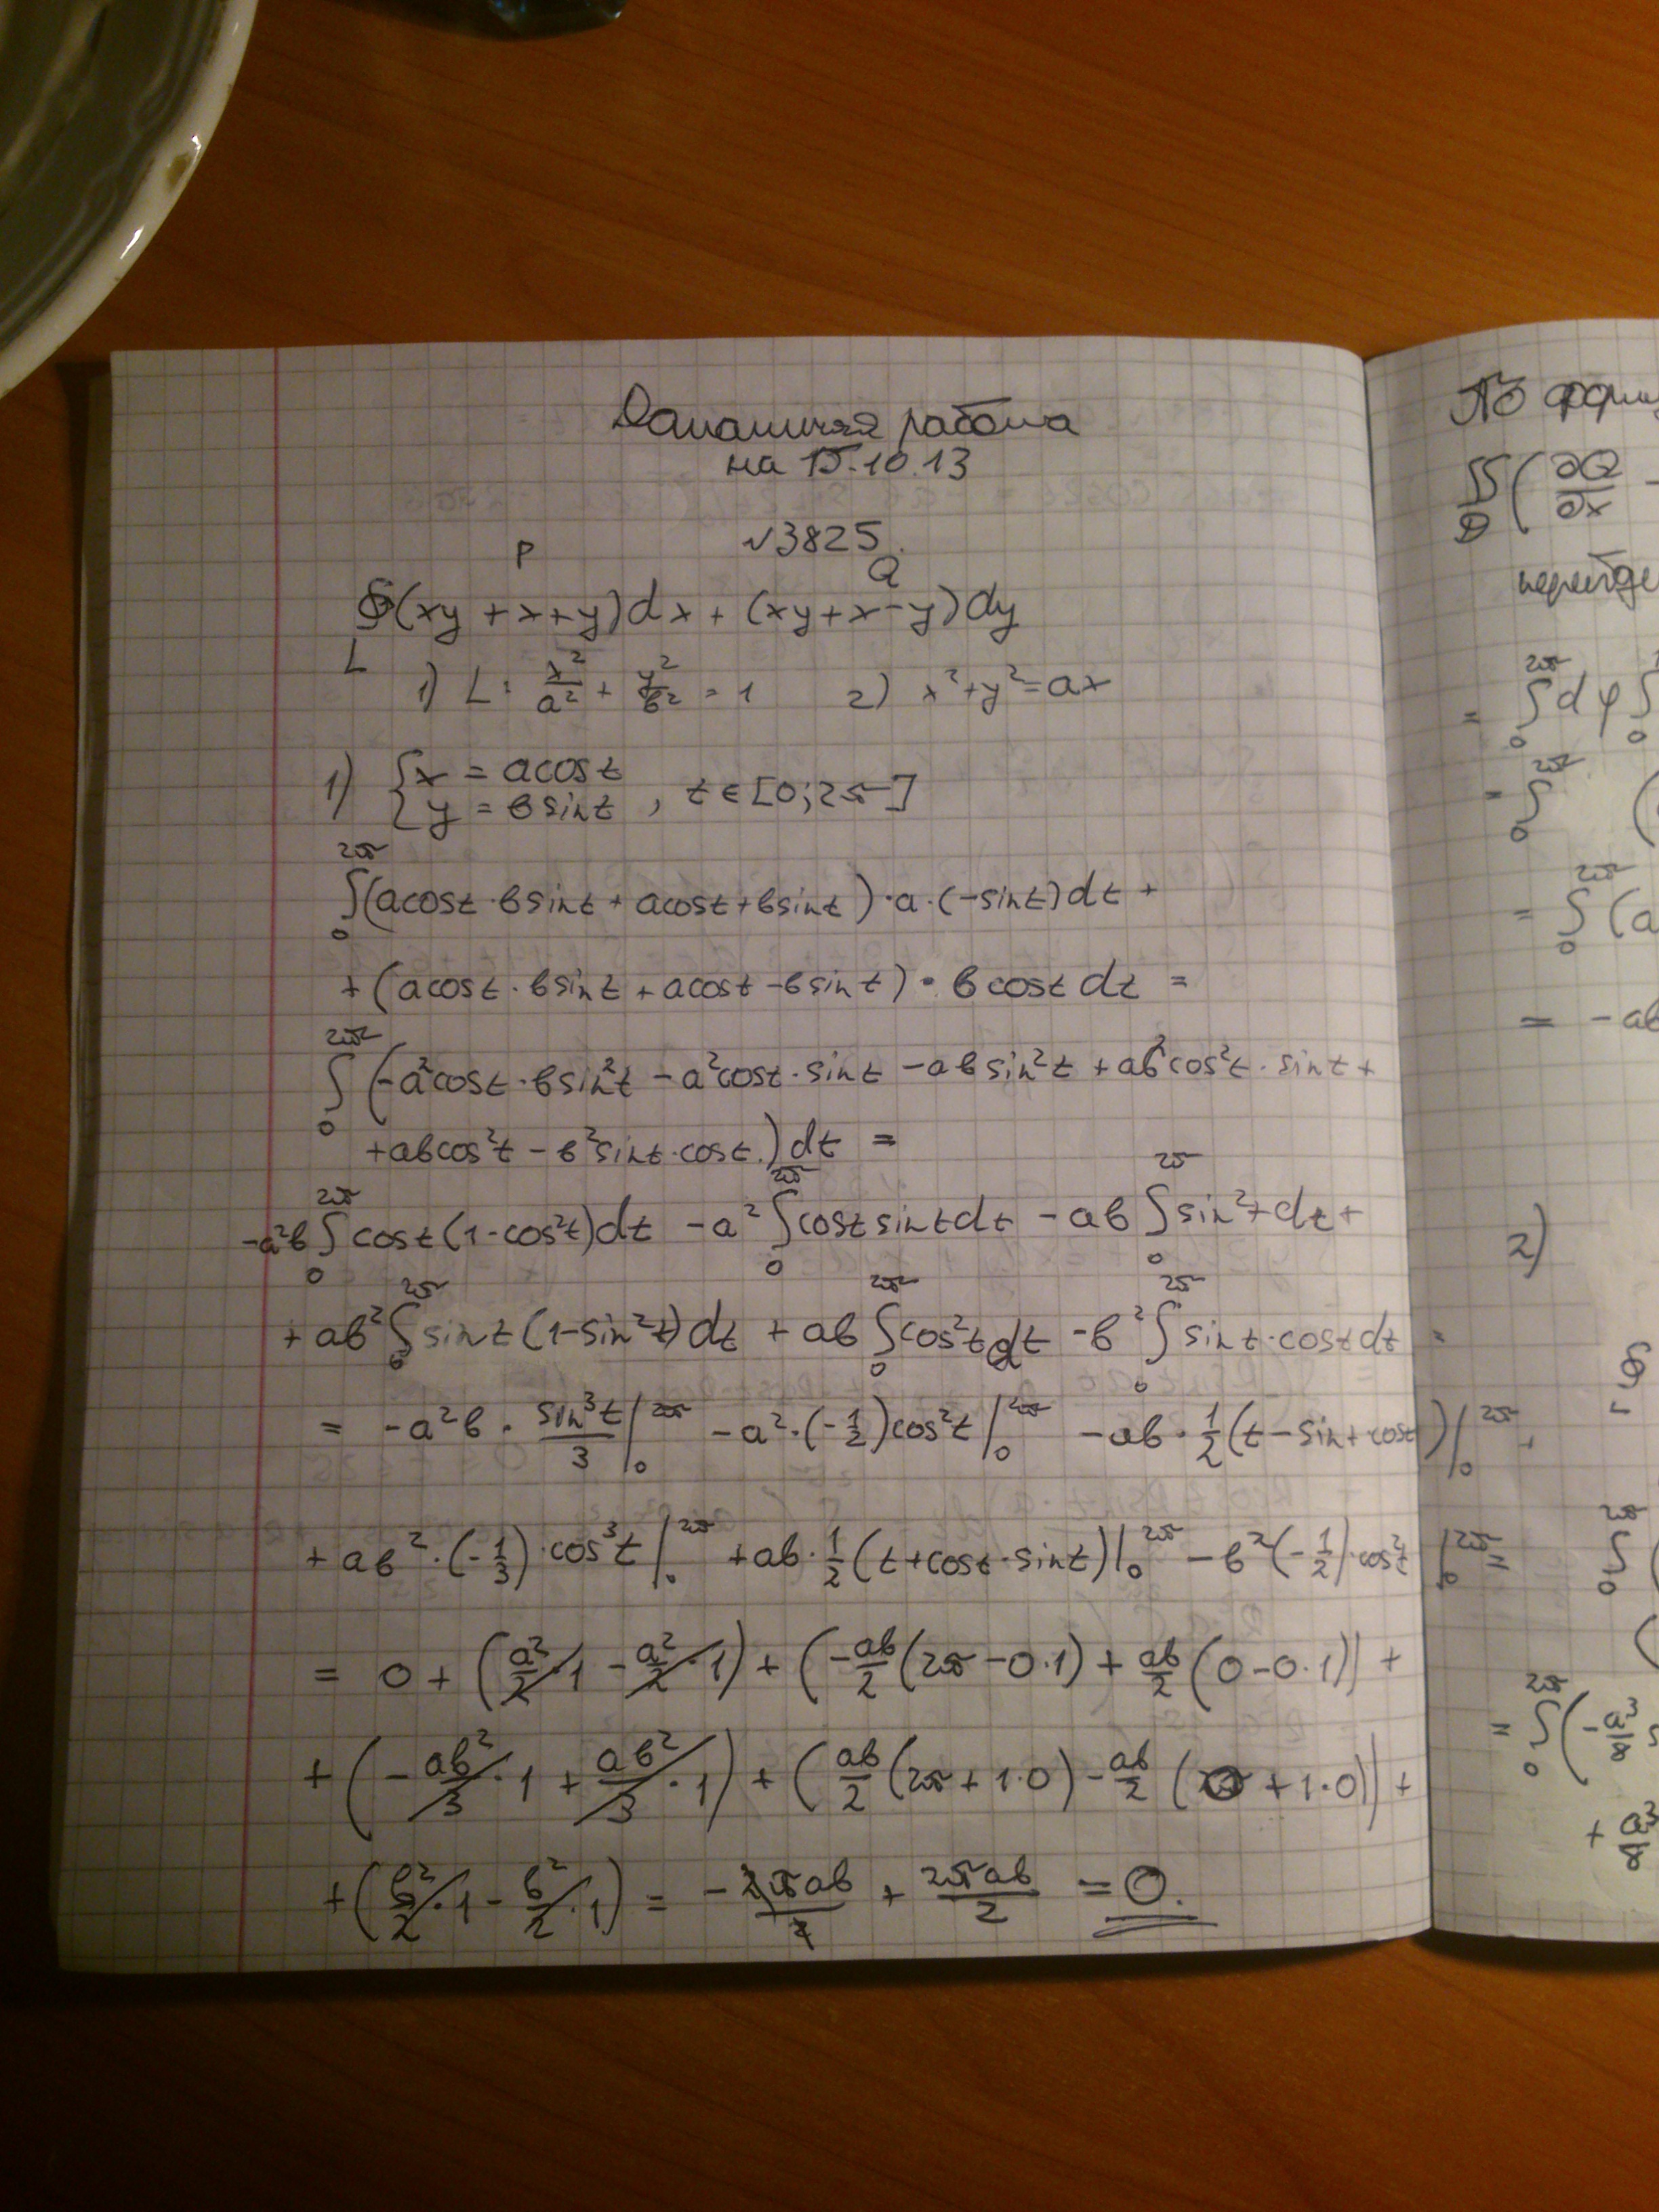 Домашняя работа
на 15.10.13
№3825.
P Q
∮(xy + x + y)dx + (xy + x - y)dy
L
1) L: x²/a² + y²/b² = 1 2) x² + y² = ax
1) { x = acost
{ y = bsint , t ∈ [0; 2π]
∫₀^2π (acost · bsint + acost + bsint) · a · (-sint)dt +
+ (acost · bsint + acost - bsint) · bcost dt =
∫₀^2π (-a²cost · bsin²t - a²cost · sint - absin²t + ab²cos²t · sint +
+ abcos²t - b²sint · cost.)dt =
-a²b ∫₀^2π cost(1-cos²t)dt - a² ∫₀^2π cost sint dt - ab ∫₀^2π sin²t dt +
+ ab² ∫₀^2π sint(1-sin²t)dt + ab ∫₀^2π cos²t dt - b² ∫₀^2π sint · cost dt =
= -a²b · sin³t/3 |₀^2π - a² · (-1/2)cos²t |₀^2π - ab · 1/2 (t - sint cost) |₀^2π +
+ ab² · (-1/3) · cos³t |₀^2π + ab · 1/2 (t + cost · sint) |₀^2π - b² (-1/2) · cos²t |₀^2π =
= 0 + (a²/2 · 1 - a²/2 · 1) + (-ab/2 (2π - 0·1) + ab/2 (0 - 0·1)) +
+ (-ab²/3 · 1 + ab²/3 · 1) + (ab/2 (2π + 1·0) - ab/2 (0 + 1·0)) +
+ (b²/2 · 1 - b²/2 · 1) = -2πab/2 + 2πab/2 = 0.
По форму
∬ (∂Q/∂x -
D
перейде
= ∫₀^2π dφ ∫₀
= ∫₀^2π (
= ∫₀^2π (a
= -ab
2)
∮
∫₀^2π (
= ∫₀^2π (-a³/8 s
+ a³/8